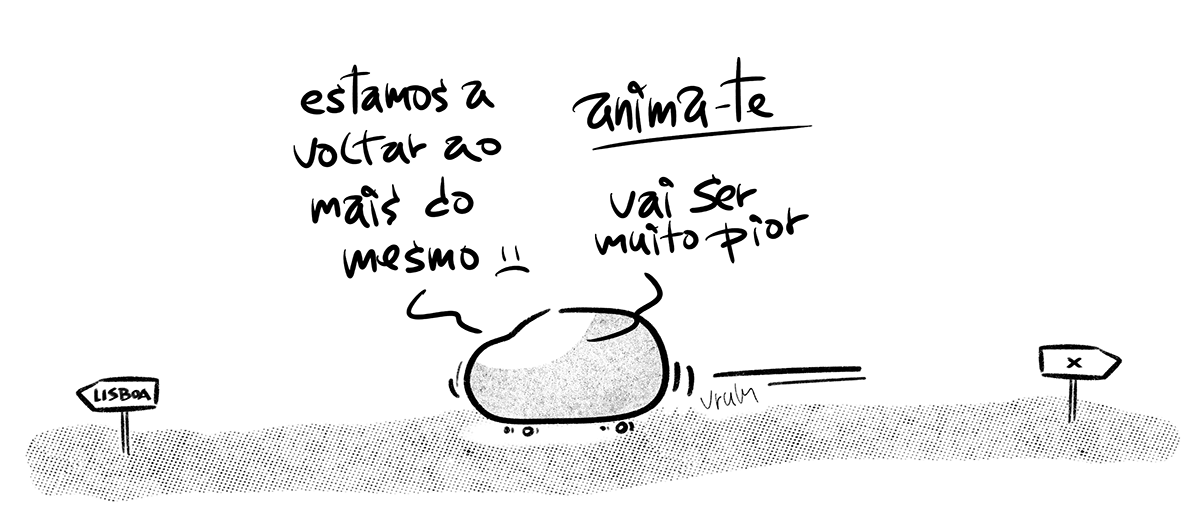 estamos a
voltar ao
mais do
mesmo
anima-te
vai ser
muito pior
LISBOA
X